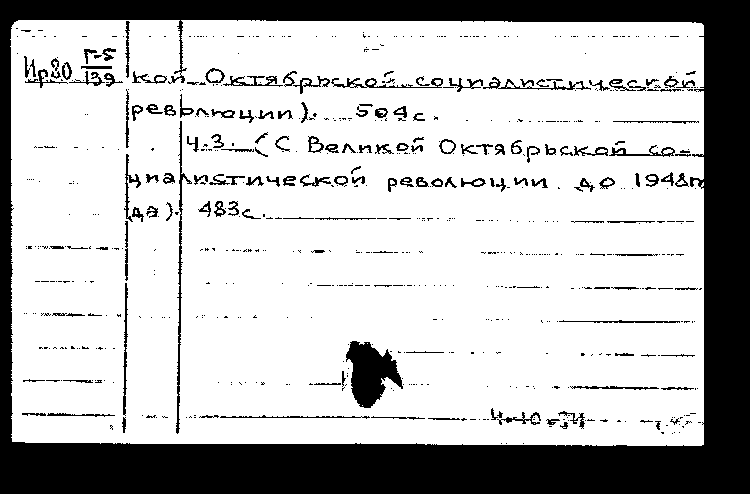 Ир80 Г-5/139 кой Октябрьской социалистической
революции). 504с.
Ч.3. (С Великой Октябрьской со-
циалистической революции до 1948го
да). 483с.